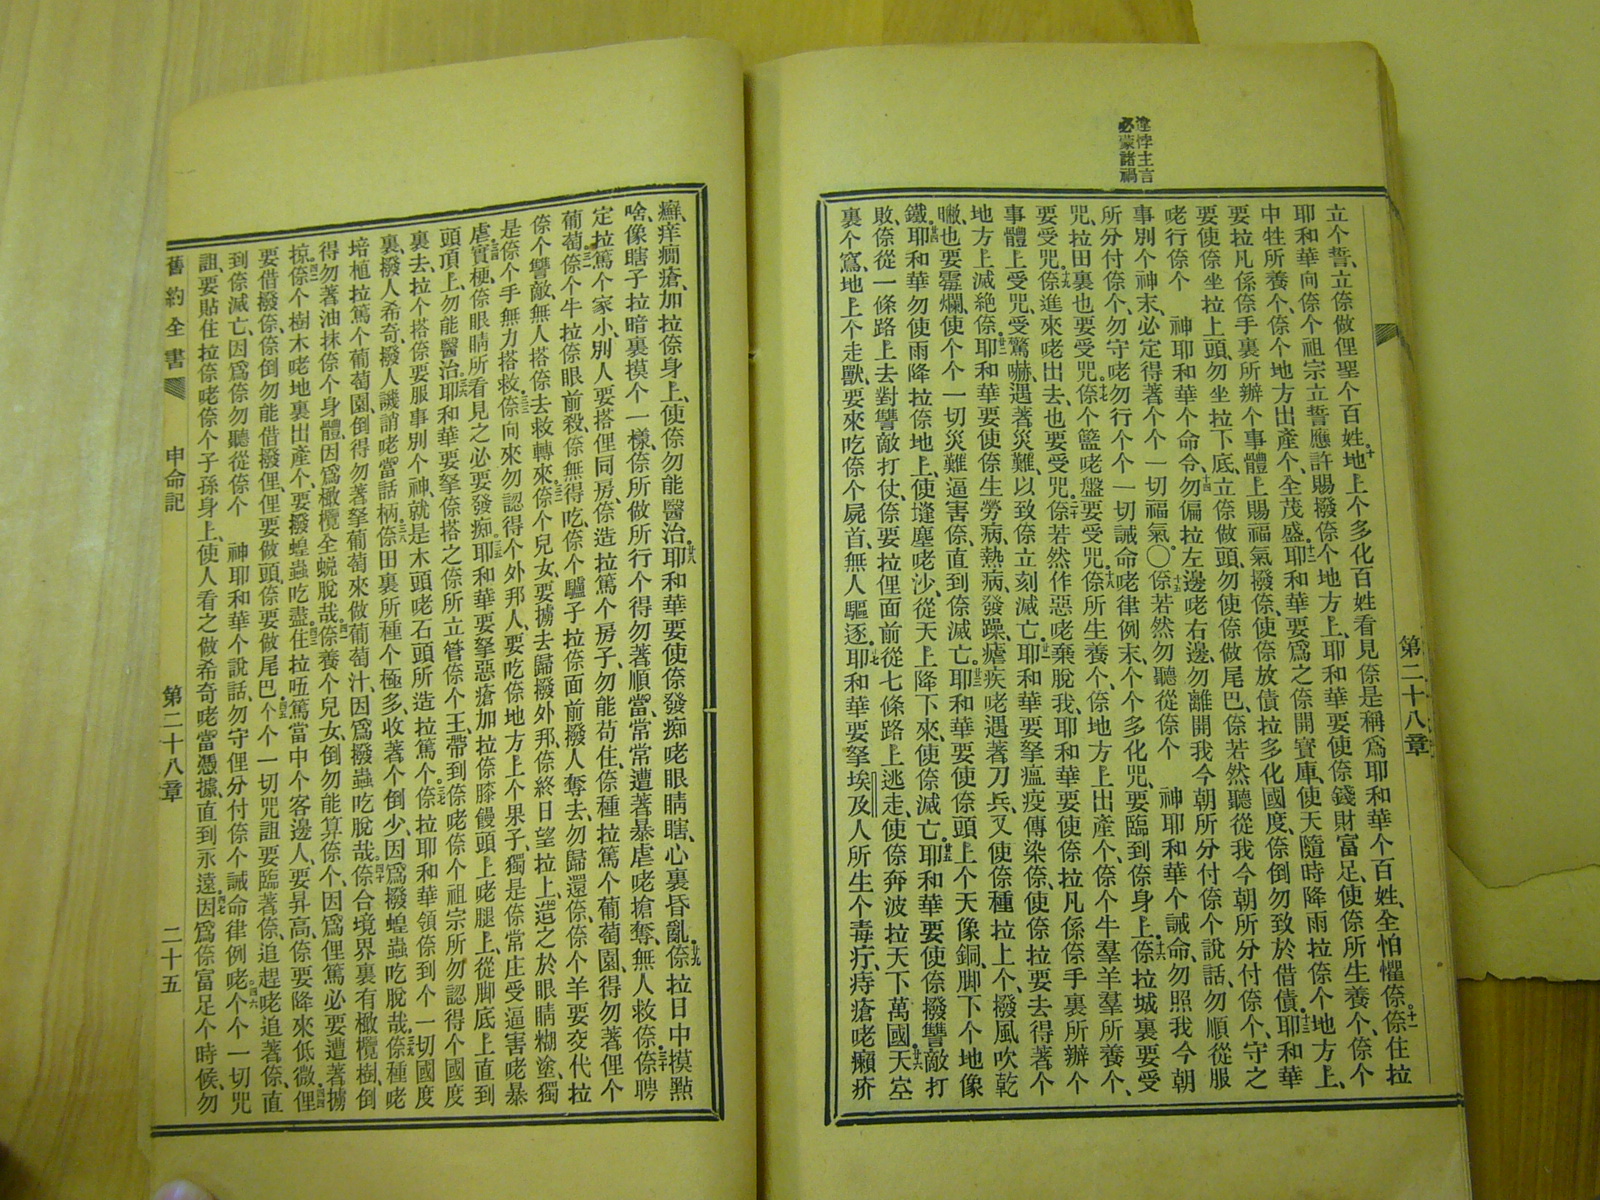 違悖主言
必蒙諸禍
第二十八章
立个誓、立倷做俚聖个百姓、地上个多化百姓看見倷是稱爲耶和華个百姓、全怕懼倷、倷住拉
耶和華向倷个祖宗立誓應許賜撥倷个地方上、耶和華要使倷錢財富足、使倷所生養个、倷个
中牲所養个、倷个地方出產个、全茂盛、耶和華要爲之倷開寶庫、使天隨時降雨拉倷个地方上、
要拉凡係倷手裏所辦个事體上賜福氣撥倷、使倷放債拉多化國度、倷倒勿致於借債、耶和華
要使倷坐拉上頭、勿坐拉下底、立倷做頭、勿使倷做尾巴、倷若然聽從我今朝所分付倷个、守之
咾行倷个　神耶和華个命令、勿偏拉左邊咾右邊、勿離開我今朝所分付倷个說話、勿順從服
事別个神末、必定得著个个一切福氣〇倷若然勿聽從倷个　神耶和華个誡命、勿照我今朝
所分付倷个、勿守咾勿行个个一切誡命咾律例末、个个多化咒、要臨到倷身上、倷拉城裏要受
咒、拉田裏也要受咒、倷个籃咾盤要受咒、倷所生養个、倷地方上出產个、倷个牛羣羊羣所養个、
要受咒、倷進來咾出去、也要受咒、倷若然作惡咾棄脫我、耶和華要使倷拉凡係倷手裏所辦个
事體上受咒、受驚嚇、遇著災難、以致倷立刻滅亡、耶和華要拏瘟疫傳染倷、使倷拉要去得著个
地方上滅絕倷、耶和華要使倷生勞病、熱病、發躁、瘧疾咾遇著刀兵、又使倷種拉上个、撥風吹乾
嚫也要霉爛、使个个一切災難逼害倷、直到倷滅亡、耶和華要使倷頭上个天像銅、脚下个地像
鐵、耶和華勿使雨降拉倷地上、使㙡塵咾沙、從天上降下來、使倷滅亡、耶和華要使倷撥讐敵打
敗、倷從一條路上去對讐敵打仗、倷要拉俚面前從七條路上逃走、使倷奔波拉天下萬國、天空
裏个窵、地上个走獸、要來吃倷个屍首、無人驅逐、耶和華要拏埃及人所生个毒疔、痔瘡咾癩疥
癬、痒癎瘡、加拉倷身上、使倷勿能醫治、耶和華要使倷發痴咾眼睛瞎、心裏昏亂、倷拉日中摸㸃
啥、像瞎子拉暗裏摸个一樣、倷所做所行个得勿著順當、常常遭著暴虐咾搶奪、無人救倷、倷聘
定拉篤个家小、別人要搭俚同房、倷造拉篤个房子、勿能苟住、倷種拉篤个葡萄園、得勿著俚个
葡萄、倷个牛拉倷眼前殺、倷無得吃、倷个驢子拉倷面前撥人奪去、勿歸還倷、倷个羊要交代拉
倷个讐敵、無人搭倷去救轉來、倷个兒女、要擄去歸撥外邦、倷終日望拉上、造之於眼睛糊塗、獨
是倷个手無力搭救、倷向來勿認得个外邦人、要吃倷地方上个果子、獨是倷常庄受逼害咾暴
虐、實梗、倷眼睛所看見之必要發痴、耶和華要拏惡瘡加拉倷膝饅頭上咾腿上、從脚底上直到
頭頂上、勿能醫治、耶和華要拏倷搭之倷所立管倷个王、帶到倷咾倷个祖宗所勿認得个國度
裏去、拉个搭倷要服事別个神、就是木頭咾石頭所造拉篤个、倷拉耶和華領倷到个一切國度
裏、撥人希奇、撥人譏誚咾當話柄、倷田裏所種个極多、收著个倒少、因爲撥蝗蟲吃脫哉、倷種咾
培植拉篤个葡萄園、倒得勿著拏葡萄來做葡萄汁、因爲撥蟲吃脫哉、倷合境界裏有橄欖樹、倒
得勿著油抹倷个身體、因爲橄欖全蛻脫哉、倷養个兒女、倒勿能算倷个、因爲俚篤必要遭著擄
掠、倷个樹木咾地裏出產个、要撥蝗蟲吃盡、住拉㕶篤當中个客邊人、要昇高、倷要降來低微、俚
要借撥倷、倷倒勿能借撥俚、俚要做頭、倷要做尾巴、个个一切咒詛要臨著倷、追趕咾追著倷、直
到倷滅亡、因爲倷勿聽從倷个　神耶和華个說話、勿守俚分付倷个誡命律例咾个个一切咒
詛、要貼住拉倷咾倷个子孫身上、使人看之做希奇咾當憑據、直到永遠、因爲倷富足个時候、勿
舊約全書　申命記　第二十八章　二十五